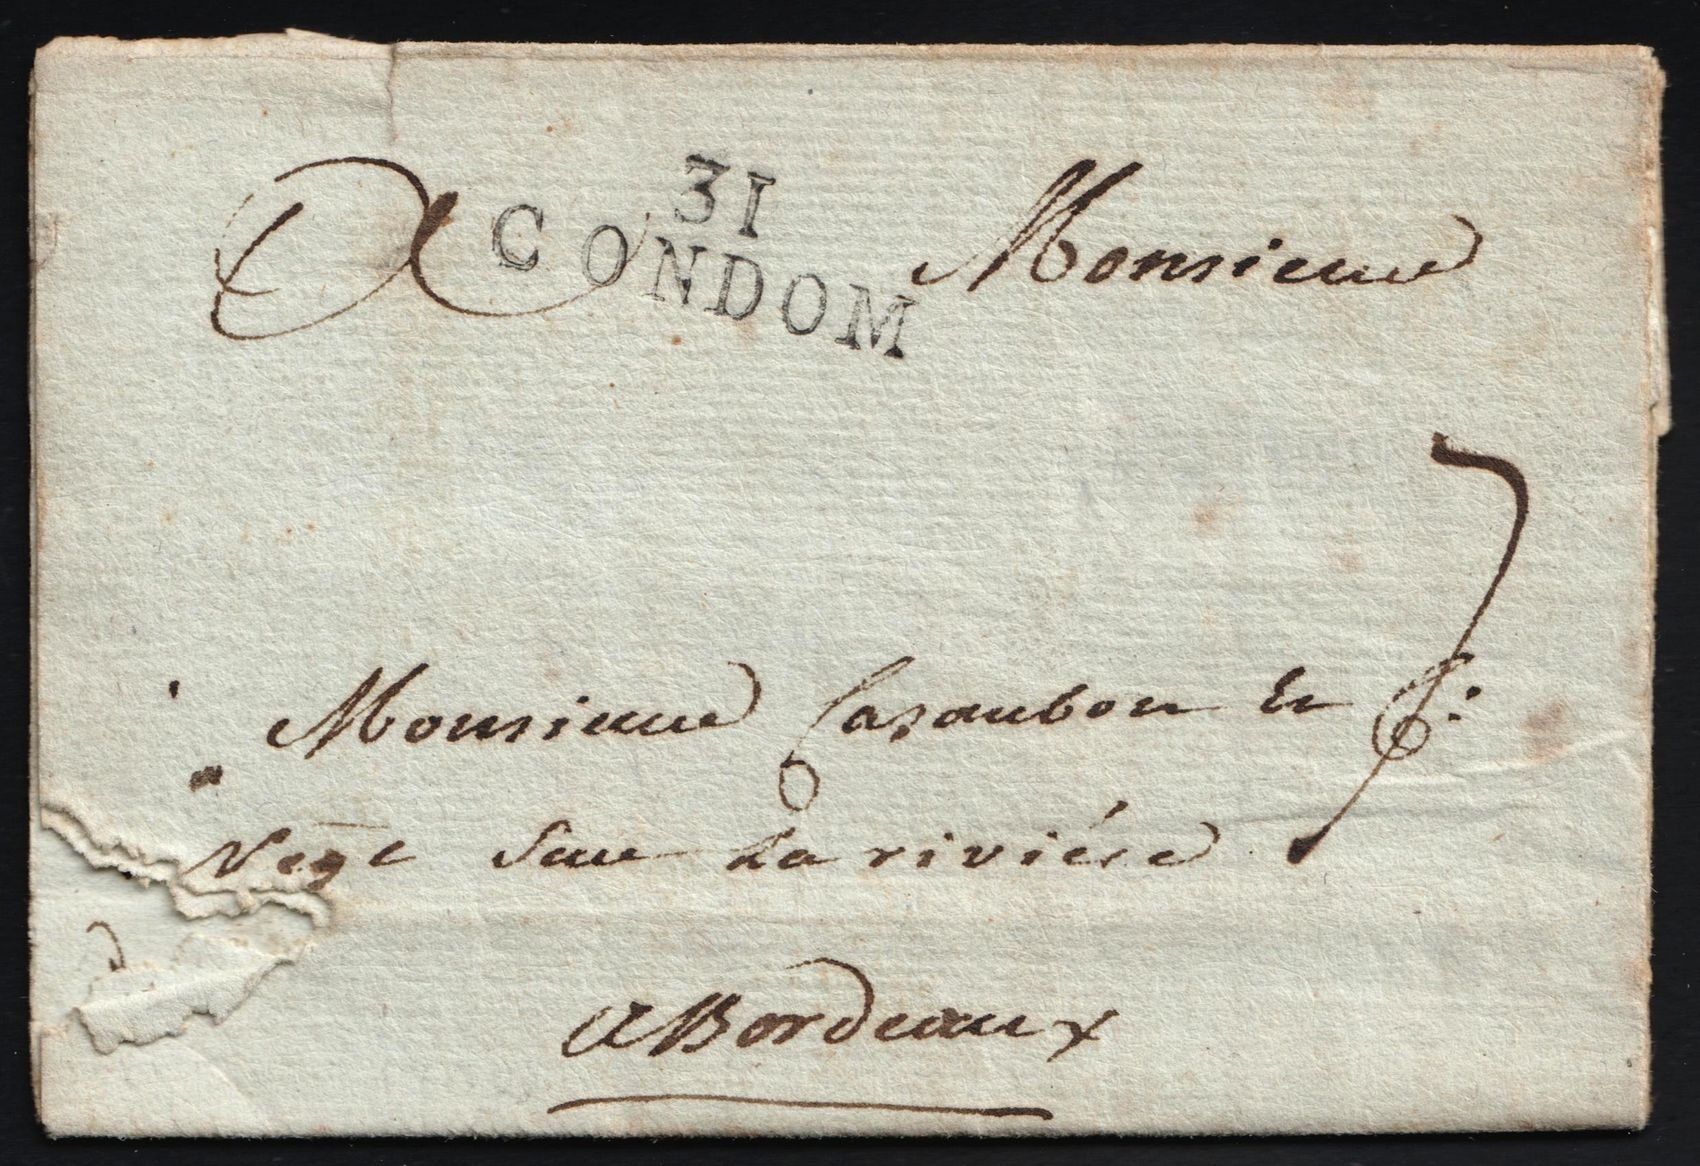 31
CONDOM
A Monsieur
7
Monsieur Casaubon
Negt Sur La riviére
a Bordeaux